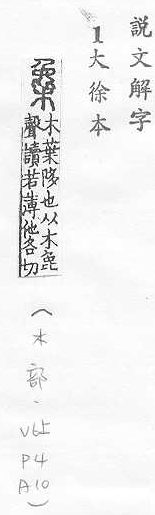 説文解字
1大徐本
木葉陊也从木㲋
聲讀若薄他各切
(木部.V6上P4A10)